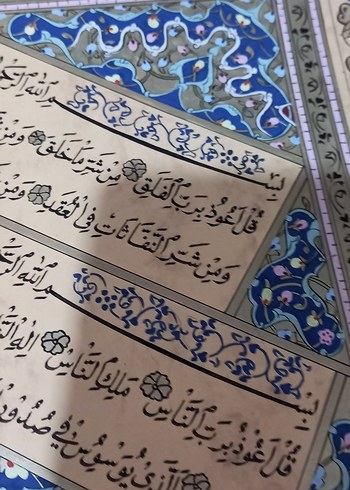 بِسْمِ اللهِ
قُلْ اَعُوذُ بِرَبِّ الْفَلَقِ مِنْ شَرِّ مَا خَلَقَ وَمِنْ
وَمِنْ شَرِّ النَّفَّاثَاتِ فِي الْعُقَدِ وَمِنْ
بِسْمِ اللهِ
قُلْ اَعُوذُ بِرَبِّ النَّاسِ مَلِكِ النَّاسِ اِلٰهِ
اَلَّذِي يُوَسْوِسُ فِي صُدُورِ